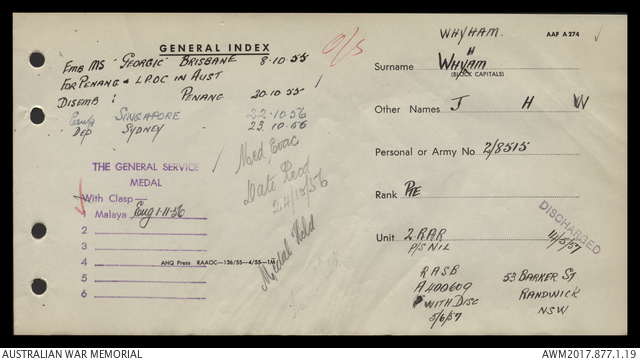 GENERAL INDEX
O/S
Emb MS 'GEORGIC' BRISBANE 8·10·55
For PENANG & LPOC IN AUST
DISEMB: PENANG 20·10·55
SINGAPORE 22·10·56
Dep SYDNEY 23·10·56
Med Evac
24/10/56
Medal Held
THE GENERAL SERVICE
MEDAL
With Clasp
1 Malaya Eng 1·11·56
2
3
4
5
6
AHQ Press RAAOC—136/55—4/55—1M
AAF A 274
WHYHAM.
H
Surname WHYAM
(BLOCK CAPITALS)
Other Names J H W
Personal or Army No. 2/8515
Rank PTE
Unit 2 RAR
P/S NIL
DISCHARGED
14/5/57
RASB
A400609
WITH DISC
5/6/57
53 BARKER ST
RANDWICK
NSW
AUSTRALIAN WAR MEMORIAL
AWM2017.877.1.19